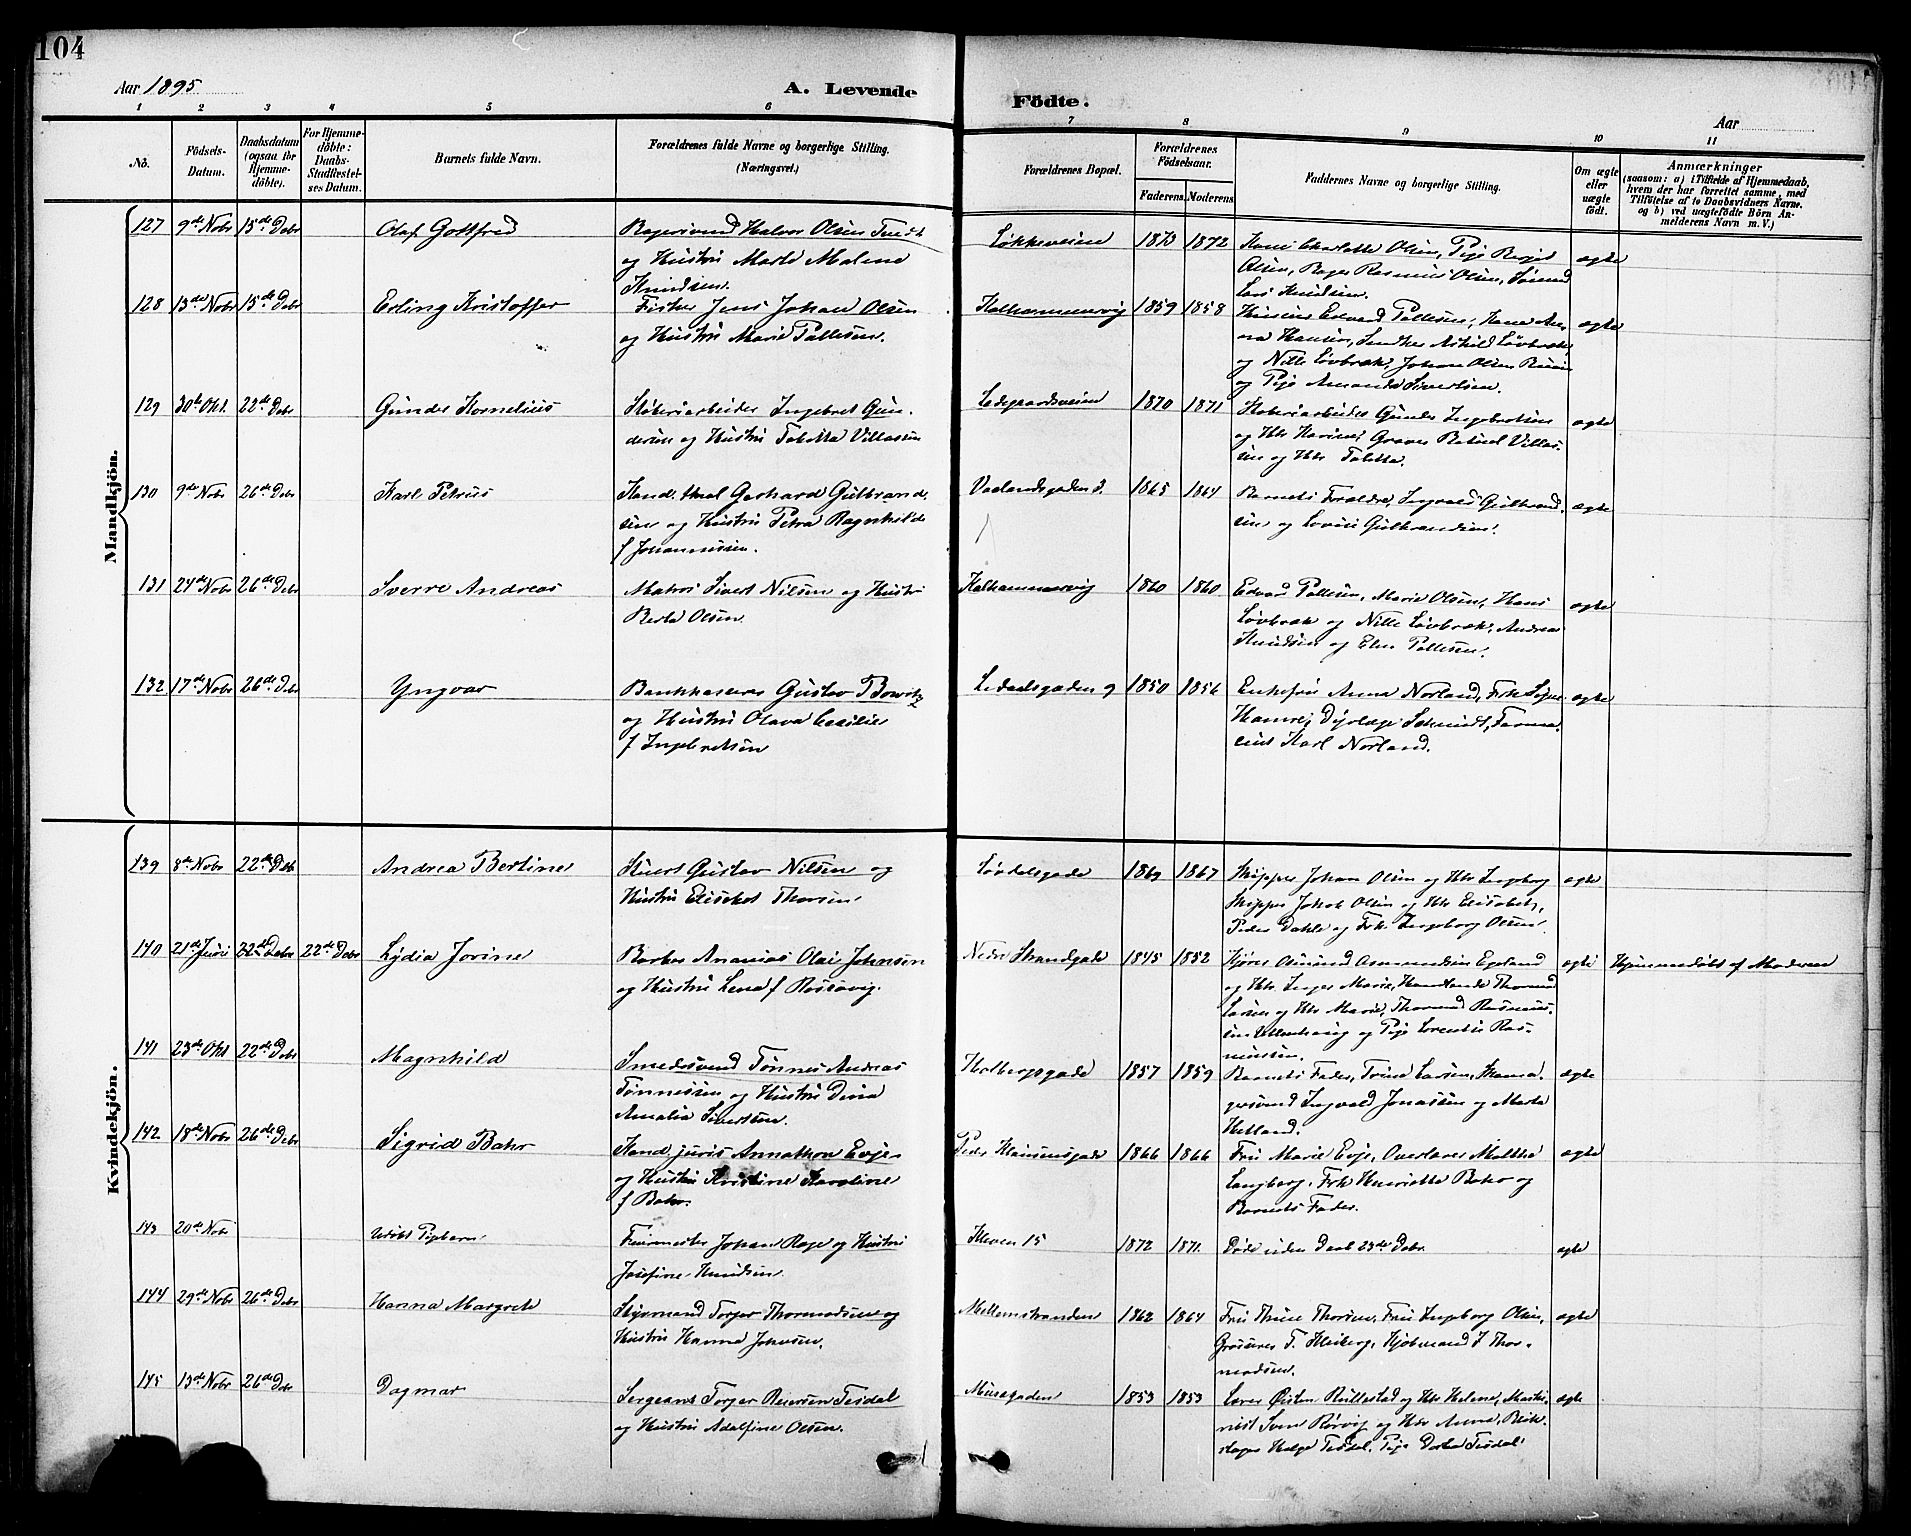 104
Aar 1895
A. Levende Födte.
Aar
1 2 3 4 5 6 7 8 9 10 11
No.
Födsels-Datum.
Daabsdatum (ogsaa for Hjemmedöbte).
For Hjemmedöbte: Daabs-Stadfæstelses Datum.
Barnets fulde Navn.
Forældrenes fulde Navne og borgerlige Stilling. (Næringsvei.)
Forældrenes Bopæl.
Forældrenes Födselsaar.
Faderens. Moderens
Faddernes Navne og borgerlige Stilling.
Om ægte eller uægte födt.
Anmærkninger
(saasom: a) i Tilfælde af Hjemmedaab,
hvem der har forrettet samme, med
Tilföielse af to Daabsvidners Navne,
og b) ved uægtefödte Börn Anmelderens Navn m. V.)
Mandkjön.
127 9de Nobr 15de Debr Olaf Gottfred
Bagersvend Halvor Olsen Tvedt
og Hustru Marte Malene
Knudsen.
Løkkeveien 1873 1872
Kone Charlotte Olsen, Pige Bergit
Olsen, Bager Rasmus Olsen, Sømand
Lars Knudsen.
ægte
128 13de Nobr 15de Debr Erling Kristoffer
Fisker Jens Johan Olsen
og Hustru Marie Pallesen.
Kalhammervig 1859 1858
Edvard Pallesen, Hans
og Nille Løvbræk, Johan Olsen
og Pige Amanda Sivertsen.
ægte
129 30te Okt. 22de Debr Gunder Kornelius
Støberiarbeider Ingebret Gundersen og Hustru Tabetta Villassen
Ledgaardsveien 1870 1871
Støberiarbeider Gunder Ingebretsen
og Htr Karine, Graver Betuel Villassen og Htr Tabetta.
ægte
130 9de Nobr 26de Debr Karl Petrus
Kand. theol Gerhard Gulbrandsen og Hustru Petra Ragnhilde
f Johannessen.
Vaalandsgaden 3. 1865 1864
Barnets Forældre, Ingvald Gulbrandsen og Lovise Gulbrandsen.
ægte
131 24de Nobr 26de Debr Sverre Andreas
Matros Sivert Nilsen og Hustru
Berta Olsen.
Kalhammervig 1860 1860
Edvard Pallesen, Marie Olsen, Hans
Løvbræk og Nille Løvbræk, Andreas
Knudsen og Elen Pallesen.
ægte
132 17de Nobr 26de Debr Yngvar
Bankkasserer Gustav Bowitz
og Hustru Olava Cecilie
f Ingebretsen
Ledaalsgaden 9 1850 1856
Enkefru Anna Norland, Frk
Hamre, Dyrlæge Schmidt, Farmaceut Karl Norland.
ægte
Kvindekjön.
139 8de Nobr 22de Debr Andrea Bertine
Stuert Gustav Nilsen og
Hustru Elisabet Thorsen.
Løvdalsgade 1869 1867
Skipper Johan Olsen og Htr Ingeborg
Skipper Jakob Olsen og Htr Elisabet,
Peder Dahle og Frk Ingeborg Olsen.
ægte
140 21de Juni 22de Debr 22de Debr Lydia Jorine
Barber Ananias Olai Johnsen
og Hustru Lena f Rossavig.
Nedre Strandgade 1845 1852
Kjører Osmund Osmundsen Egeland
og Htr Inger Marie, Handlende Thormod
Larsen og Htr Marie, Thormod Rasmussen og Pige Lorentse Rasmussen.
ægte Hjemmedøbt af Moderen
141 23de Okt 22de Debr Magnhild
Smedesvend Tønnes Andreas
Tønnessen og Hustru Dina
Amalia Sivertsen.
Holbergsgade 1857 1859
Barnets Fader, Trine Larsen, Skomagersvend Ingvald Jonassen og Marta
Helland.
ægte
142 18de Nobr 26de Debr Sigrid Bahr
Kand. juris Annathon Evje
og Hustru Kristine Karoline
f Bahr.
Peder Klausensgade 1866 1866
Fru Marie Evje, Overlærer Malthe
Langberg, Frk Henriette Bahr og
Barnets Fader.
ægte
143 20de Nobr Udøbt Pigebarn
Feiermester Johan Rage og Hustru
Josefine Knudsen.
Kleven 15 1872 1871.
Døde uden Daab 23de Debr.
ægte
144 29de Nobr 26de Debr Hanna Margrete
Styrmand Torger Thormodsen og
Hustru Hanna Johnsen.
Mellemstranden 1862 1864
Fru Thrine Thorsen, Fru Ingeborg Olsen,
Grosserer T. Kleiberg, Kjøbmand T Thormodsen.
ægte
145 13de Nobr 26de Debr Dagmar
Sergeant Torger Reiersen Tesdal
og Hustru Adolfine Olsen.
Musegaden 1853 1853
Lærer Øisten Rullestad og Htr Helene, Maskinist Sven Rørvig og Htr Anna, Blikslager Helge Tesdal, Pige Dorthea Tesdal.
ægte